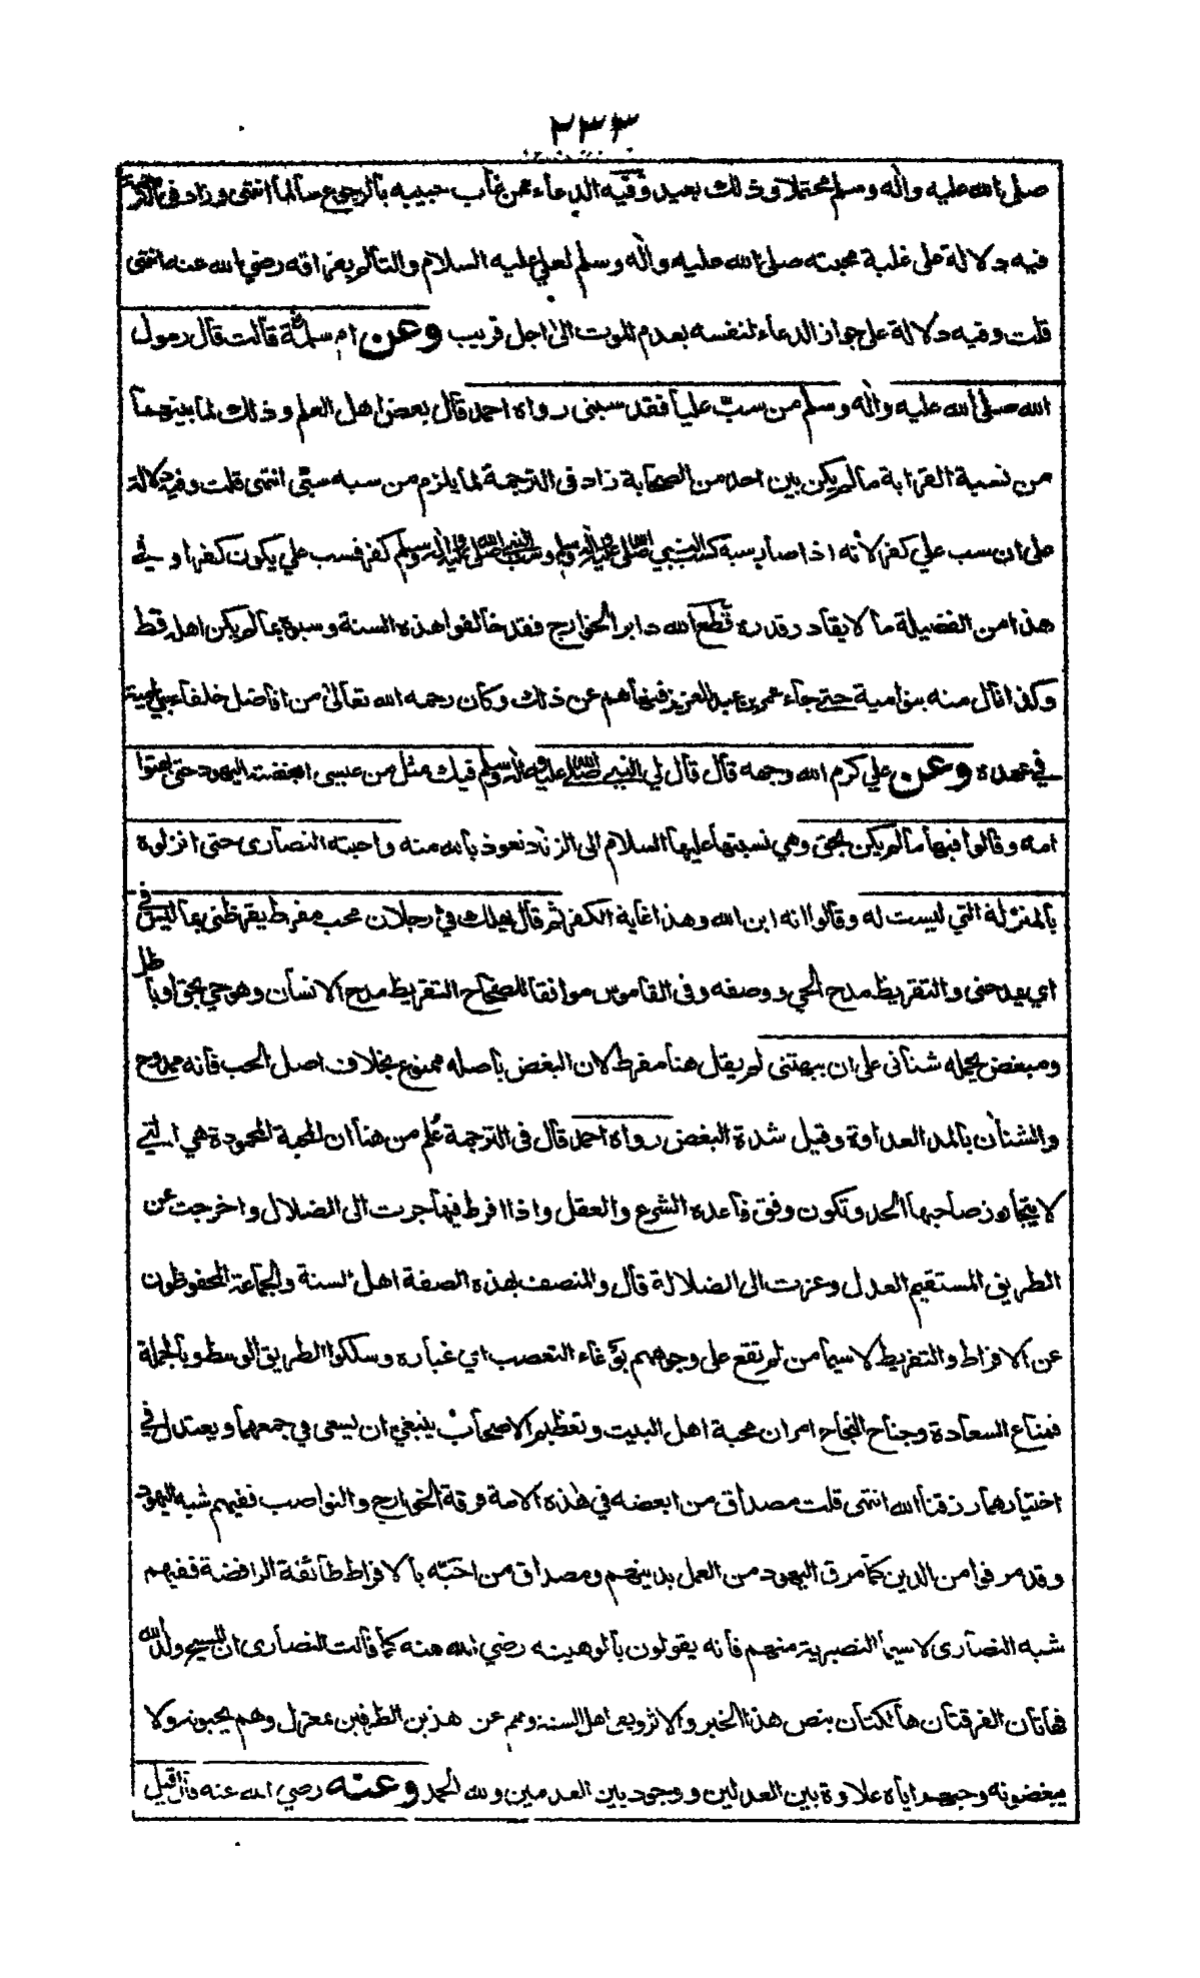 ٢٣٣
صلى الله عليه واله وسلم محتملا وذلك بعيد وفيه الدعاء ممن غاب حبيبه بالرجوع سالما انتهى وزاد في الترجمة
فيه دلالة على غلبة محبته صلى الله عليه واله وسلم لعلي عليه السلام والتألم بفراقه رضي الله عنه انتهى
قلت وفيه دلالة على جواز الدعاء لنفسه بعدم الموت الى اجل قريب وعن ام سلمة قالت قال رسول
الله صلى الله عليه واله وسلم من سبّ عليا فقد سبني رواه احمد قال بعض اهل العلم وذلك لما بينهما
من نسبة القرابة مالم يكن بين احد من الصحابة زاد في الترجمة لما يلزم من سبه سبّي انتهى قلت وفيه دلالة
على ان سب علي كفر لأنه اذا صار سبه كسب النبي صلى الله عليه واله وسلم وسب النبي صلى الله عليه واله وسلم كفر فسب علي يكون كفرا وفي
هذا من الفضيلة ما لا يقادر قدره قطع الله دابر الخوارج فقد خالفوا هذه السنة وسبوه بمالم يكن اهله قط
وكذا نال منه بنو امية حتى جاء عمر بن عبد العزيز فنهاهم عن ذلك وكان رحمه الله تعالى من افاضل خلفاء بني امية
في عهده وعن علي كرم الله وجهه قال قال لي النبي صلى الله عليه واله وسلم فيك مثل من عيسى ابغضته اليهود حتى بهتوا
امه وقالوا فيها مالم يكن بحق وهي نسبتها عليها السلام الى الزنا نعوذ بالله منه واحبته النصارى حتى انزلوه
بالمنزلة التي ليست له وقالوا انه ابن الله وهذا غاية الكفر ثم قال يهلك فيّ رجلان محب مفرط يقرظني بما ليس في
اي يمدحني والتقريظ مدح الحي ووصفه وفي القاموس موافقا للصحاح التقريظ مدح الانسان وهو حي بحق او باطل
ومبغض يحمله شنآني على ان يبهتني لم يقل هنا مفرط لان البغض بأصله ممنوع بخلاف اصل الحب فانه ممدوح
والشنآن بالمد العداوة وقيل شدة البغض رواه احمد قال في الترجمة عُلم من هنا ان المحبة المحمودة هي التي
لا يتجاوز صاحبها الحد وتكون وفق قاعدة الشرع والعقل واذا افرط فيها جرت الى الضلال واخرجت عن
الطريق المستقيم العدل وعزت الى الضلالة قال والمنصف بهذه الصفة اهل السنة والجماعة المحفوظون
عن الافراط والتفريط لا سيما من لم تقع على وجوههم بوغاء التعصب اي غباره وسلكوا الطريق الوسط وبالجملة
فمناع السعادة وجناح النجاح امران محبة اهل البيت وتعظيم الاصحاب ينبغي ان يسعى في جمعهما ويعتدل في
اختيارهما رزقنا الله انتهى قلت مصداق من ابغضه في هذه الامة فرقة الخوارج والنواصب ففيهم شبه اليهود
وقد مرقوا من الدين كما مرق اليهود من العمل بدينهم ومصداق من احبّه بالافراط طائفة الرافضة ففيهم
شبه النصارى لا سيما النصيرية منهم فانه يقولون بالوهيته رضي الله عنه كما قالت النصارى ان المسيح ولد الله
فهاتان الفرقتان هالكتان بنص هذا الخبر والاثر وبقي اهل السنة وهم عن هذين الطرفين بمعزل وهم يحبونه ولا
يبغضونه وحبهم اياه علاوة بين العدلين ووجود بين العدمين ولله الحمد وعنه رضي الله عنه قال قيل